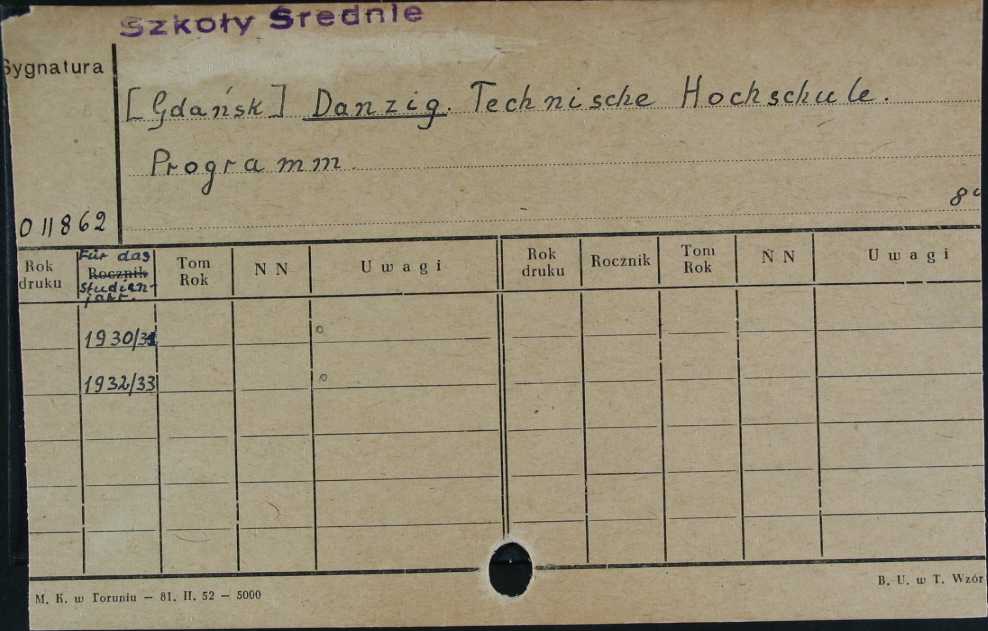 Szkoły Średnie
Sygnatura
[Gdańsk] Danzig. Technische Hochschule.
Programm.
8°
011862
Rok druku
Für das
Rocznik
Studien-
jahr.
Tom Rok
N N
Uwagi
Rok druku
Rocznik
Tom Rok
N N
Uwagi
1930/31
1932/33
M. K. w Toruniu — 81. II. 52 — 5000
B. U. w T. Wzór